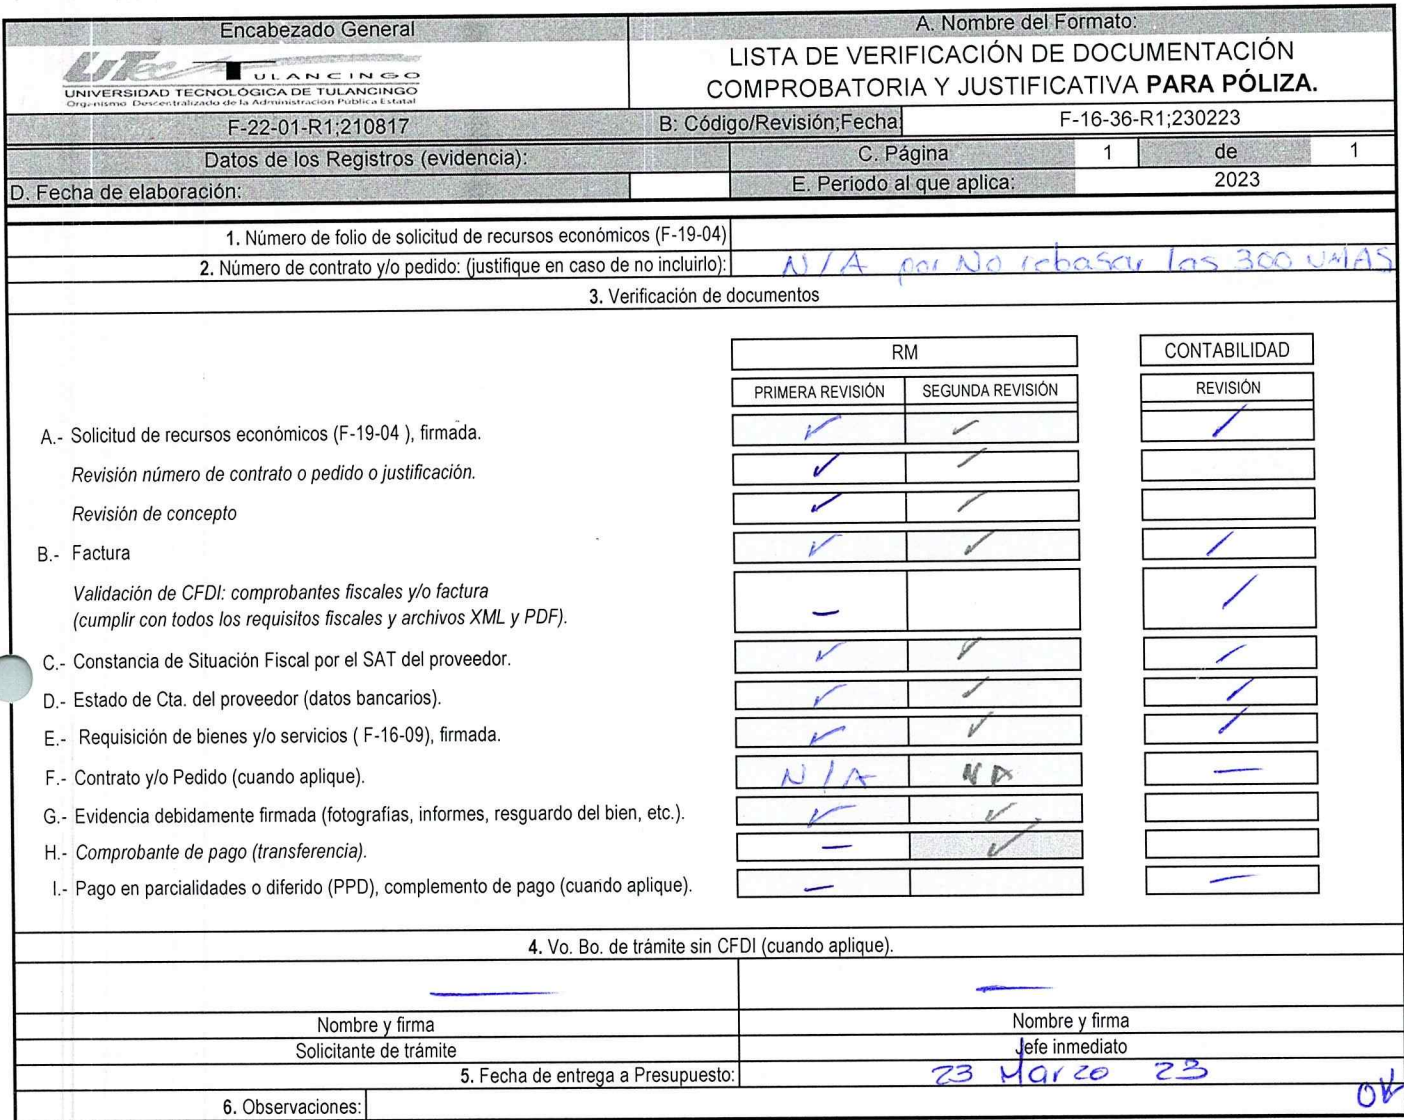 Encabezado General
A. Nombre del Formato:
UTec TULANCINGO
UNIVERSIDAD TECNOLÓGICA DE TULANCINGO
Organismo Descentralizado de la Administración Pública Estatal
LISTA DE VERIFICACIÓN DE DOCUMENTACIÓN
COMPROBATORIA Y JUSTIFICATIVA PARA PÓLIZA.
F-22-01-R1;210817
B: Código/Revisión;Fecha:
F-16-36-R1;230223
Datos de los Registros (evidencia):
C. Página 1 de 1
D. Fecha de elaboración:
E. Periodo al que aplica: 2023
1. Número de folio de solicitud de recursos económicos (F-19-04)
2. Número de contrato y/o pedido: (justifique en caso de no incluirlo): N/A por No rebasar las 300 UMAS
3. Verificación de documentos
RM CONTABILIDAD
PRIMERA REVISIÓN SEGUNDA REVISIÓN REVISIÓN
A.- Solicitud de recursos económicos (F-19-04 ), firmada. ✓ ✓ ✓
Revisión número de contrato o pedido o justificación. ✓ ✓
Revisión de concepto ✓ ✓
B.- Factura ✓ ✓ ✓
Validación de CFDI: comprobantes fiscales y/o factura
(cumplir con todos los requisitos fiscales y archivos XML y PDF). — ✓
C.- Constancia de Situación Fiscal por el SAT del proveedor. ✓ ✓ ✓
D.- Estado de Cta. del proveedor (datos bancarios). ✓ ✓ ✓
E.- Requisición de bienes y/o servicios ( F-16-09), firmada. ✓ ✓ ✓
F.- Contrato y/o Pedido (cuando aplique). N/A NA —
G.- Evidencia debidamente firmada (fotografías, informes, resguardo del bien, etc.). ✓ ✓
H.- Comprobante de pago (transferencia). — ✓
I.- Pago en parcialidades o diferido (PPD), complemento de pago (cuando aplique). — —
4. Vo. Bo. de trámite sin CFDI (cuando aplique).
— —
Nombre y firma Nombre y firma
Solicitante de trámite Jefe inmediato
5. Fecha de entrega a Presupuesto: 23 Marzo 23
6. Observaciones: OK